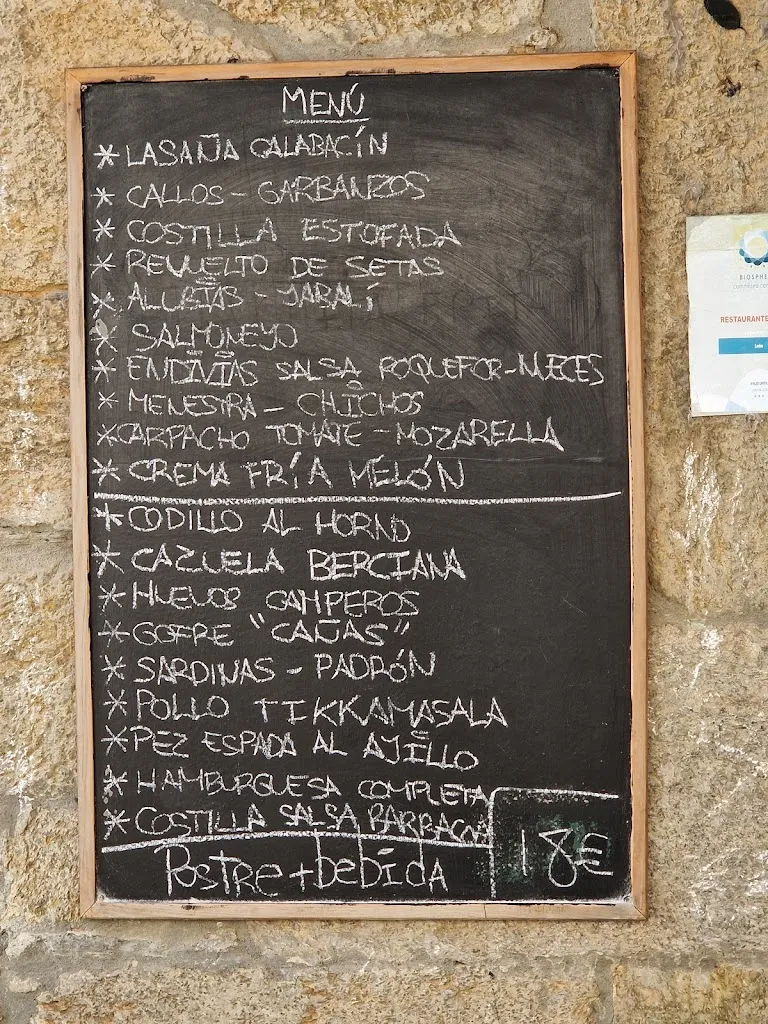 MENÚ
* LASAÑA CALABACÍN
* CALLOS - GARBANZOS
* COSTILLA ESTOFADA
* REVUELTO DE SETAS
* ALUBIAS - JABALÍ
* SALMOREJO
* ENDIVIAS SALSA ROQUEFOR-NUECES
* MENESTRA - CHICHOS
* CARPACHO TOMATE - MOZARELLA
* CREMA FRÍA MELÓN
* CODILLO AL HORNO
* CAZUELA BERCIANA
* HUEVOS CAMPEROS
* GOFRE "CAÑAS"
* SARDINAS - PADRÓN
* POLLO TIKKAMASALA
* PEZ ESPADA AL AJILLO
* HAMBURGUESA COMPLETA
* COSTILLA SALSA BARBACOA
Postre + bebida
18€
BIOSPHE
RESTAURANTE